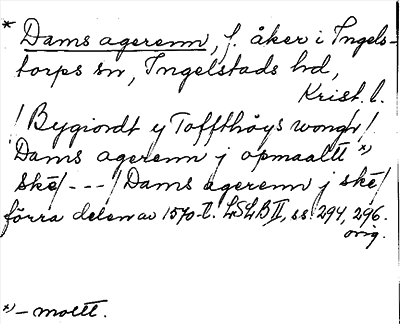 * Dams agerenn, f. åker i Ingels-
torps sn, Ingelstads hd,
Krist. l.
/Bygiordt y Toffthøys wongh/
Dams agerenn j opmaaltt *)
Ske/---/Dams agerenn j ske/
förra delen av 1570-t. LSLB II, ss. 294, 296.
orig.
*) – moltt.